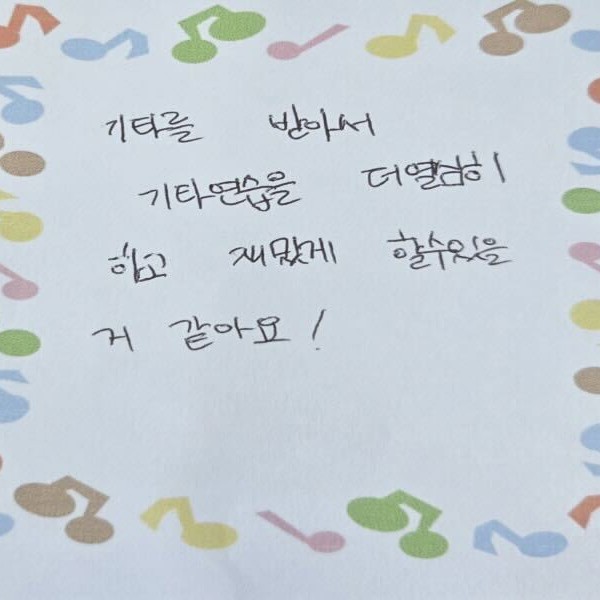 기타를 받아서
기타연습을 더열심히
하고 재밌게 할수있을
거 같아요!